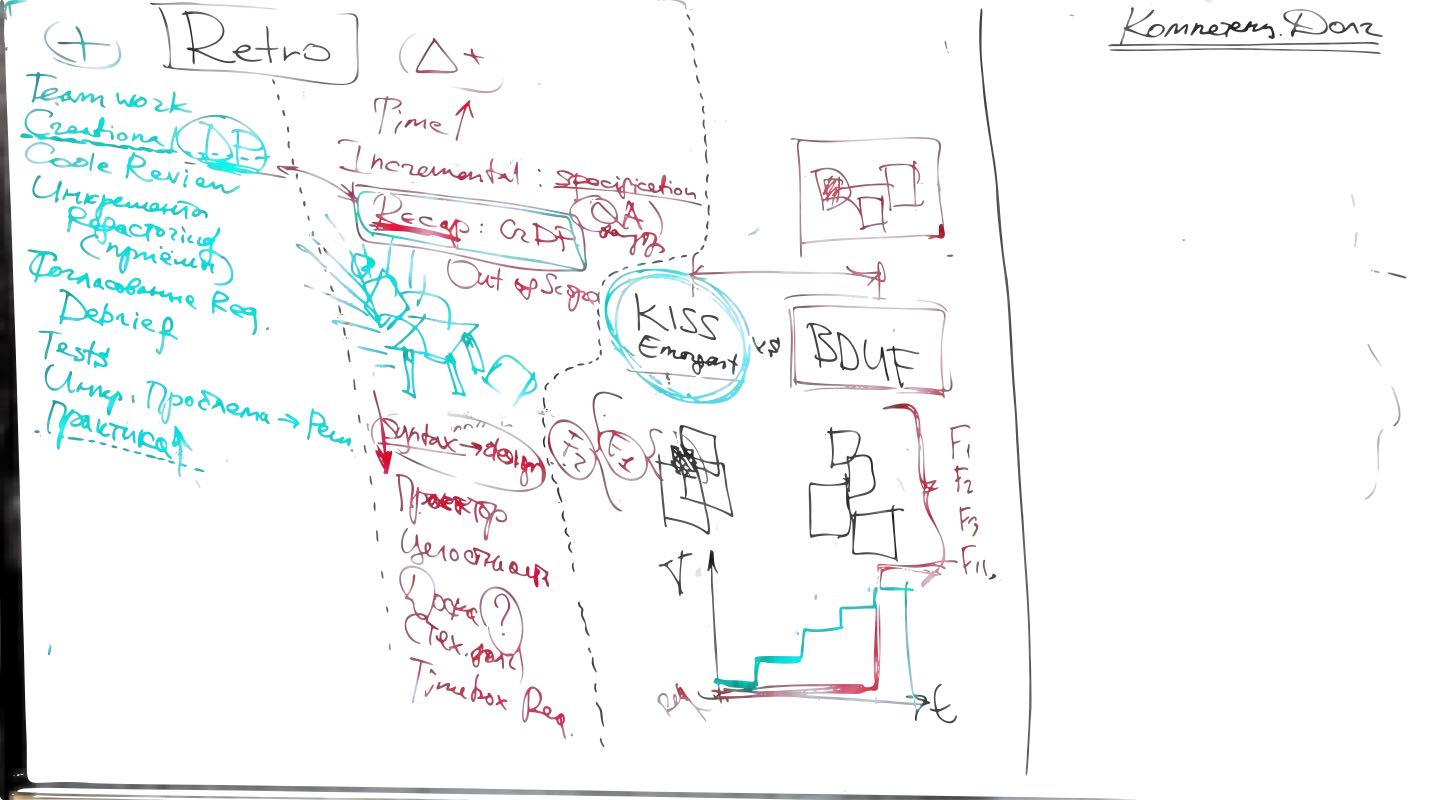 Retro
+
Team work
Creational DP
Code Review
Инкременты
Refactoring
(приёмы)
Согласование Req.
Debrief
Tests
Инкр. Проблема → Реш.
Практика↑
(△+
Time ↑
Incremental : specification
Recap :
QA
Out of Scope
Syntax → design
F2
F1
Целостность
?
(Тех. долг)
Timebox Req.
KISS
Emergent
vs
BDUF
F1
F2
F3
F11,
V
Req
t
Компетенц. Долг